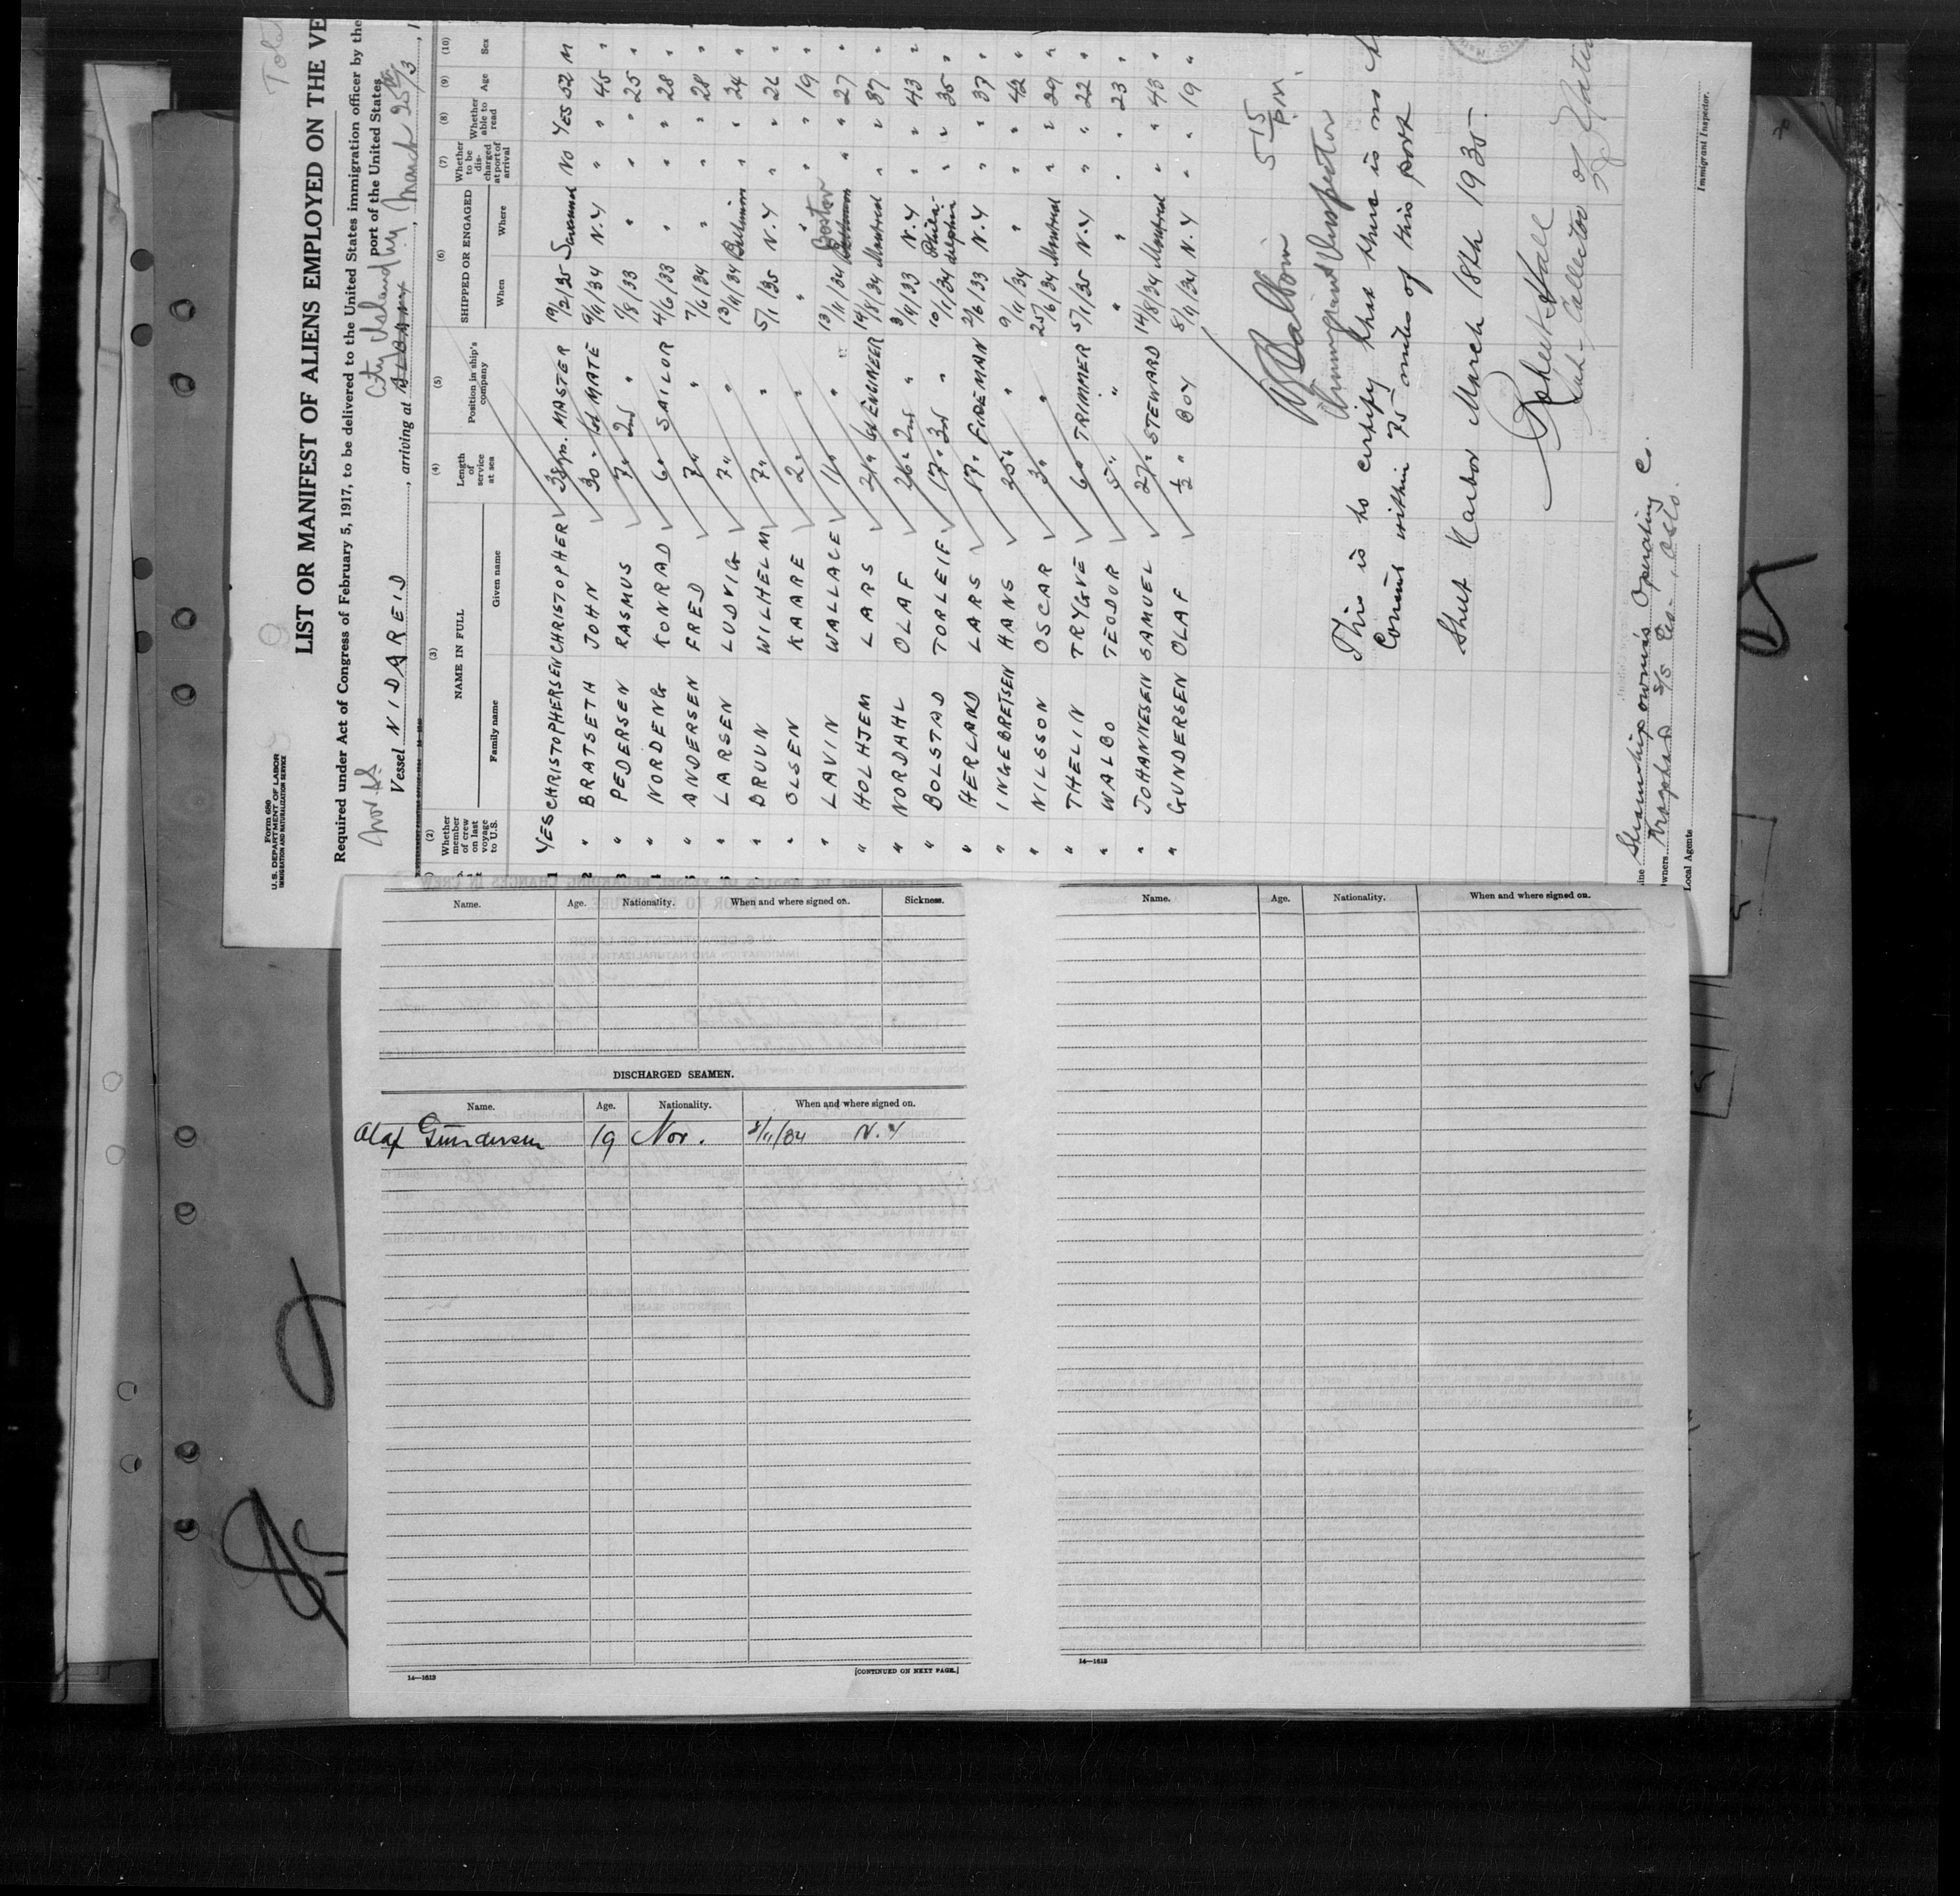 Form 680
U.S. DEPARTMENT OF LABOR
IMMIGRATION AND NATURALIZATION SERVICE
LIST OR MANIFEST OF ALIENS EMPLOYED ON THE VE
Required under Act of Congress of February 5, 1917, to be delivered to the United States immigration officer by the
port of the United States
Nor. SS City Island, NY
Vessel NIDAREID, arriving at ALBANY, March 25th, 1
(2) (3) (4) (5) (6) (7) (8) (9) (10)
Whether member of crew on last voyage to U.S. NAME IN FULL Family name Given name Length of service at sea Position in ship's company SHIPPED OR ENGAGED When Where Whether to be discharged at port of arrival Whether able to read Age Sex
1 YES CHRISTOPHERSEN CHRISTOPHER MASTER 19/2/35 Savannah NO YES 52 M
2 " BRATSETH JOHN 30 " 1st MATE 9/11/34 N.Y " " 45 "
3 " PEDERSEN RASMUS 7 " 2nd " 7/8/33 " " " 25 "
4 " NORDENG KONRAD 6 " SAILOR 4/6/33 " " " 28 "
5 " ANDERSEN FRED 7 " " 7/6/34 " " " 28 "
" LARSEN LUDVIG 7 " " 13/11/34 Baltimore " " 24 "
" BRUUN WILHELM 7 " " 5/1/35 N.Y " " 26 "
" OLSEN KAARE 2 " " " " " " 19 "
" LAVIN WALLACE 11 " " 13/11/34 Boston " " 27 "
" HOLHJEM LARS 21 " 1st ENGINEER 14/8/34 Montreal " " 37 "
" NORDAHL OLAF 26 " 2nd " 3/9/33 N.Y " " 43 "
" BOLSTAD TORLEIF 17 " 3rd " 10/1/34 Phila-delphia " " 35 "
" HERLAND LARS 17 " FIREMAN 2/6/33 N.Y " " 37 "
" INGEBRETSEN HANS 25 " " 9/11/34 " " " 42 "
" NILSSON OSCAR 3 " " 25/6/34 Montreal " " 29 "
" THELIN TRYGVE 6 " TRIMMER 5/1/35 N.Y " " 22 "
" WALBO TEODOR 5 " " " " " " 23 "
" JOHANNESEN SAMUEL 27 " STEWARD 14/8/34 Montreal " " 43 "
" GUNDERSEN OLAF ½ " BOY 8/11/34 N.Y " " 19 "
5 15 P.M.
Immigrant Inspector
This is to certify that there is no
Consul within 75 miles of this port
Shut Harbor March 18th 1935
Robert Hall
Sub-Collector of
Line Steamship owning Operating Co.
Owners
Local Agents
Immigrant Inspector.
Name. Age. Nationality. When and where signed on. Sickness.
DISCHARGED SEAMEN.
Name. Age. Nationality. When and where signed on.
Olaf Gundersen 19 Nor. 8/11/34 N.Y
14—1613 [CONTINUED ON NEXT PAGE.]
Name. Age. Nationality. When and where signed on.
14—1613